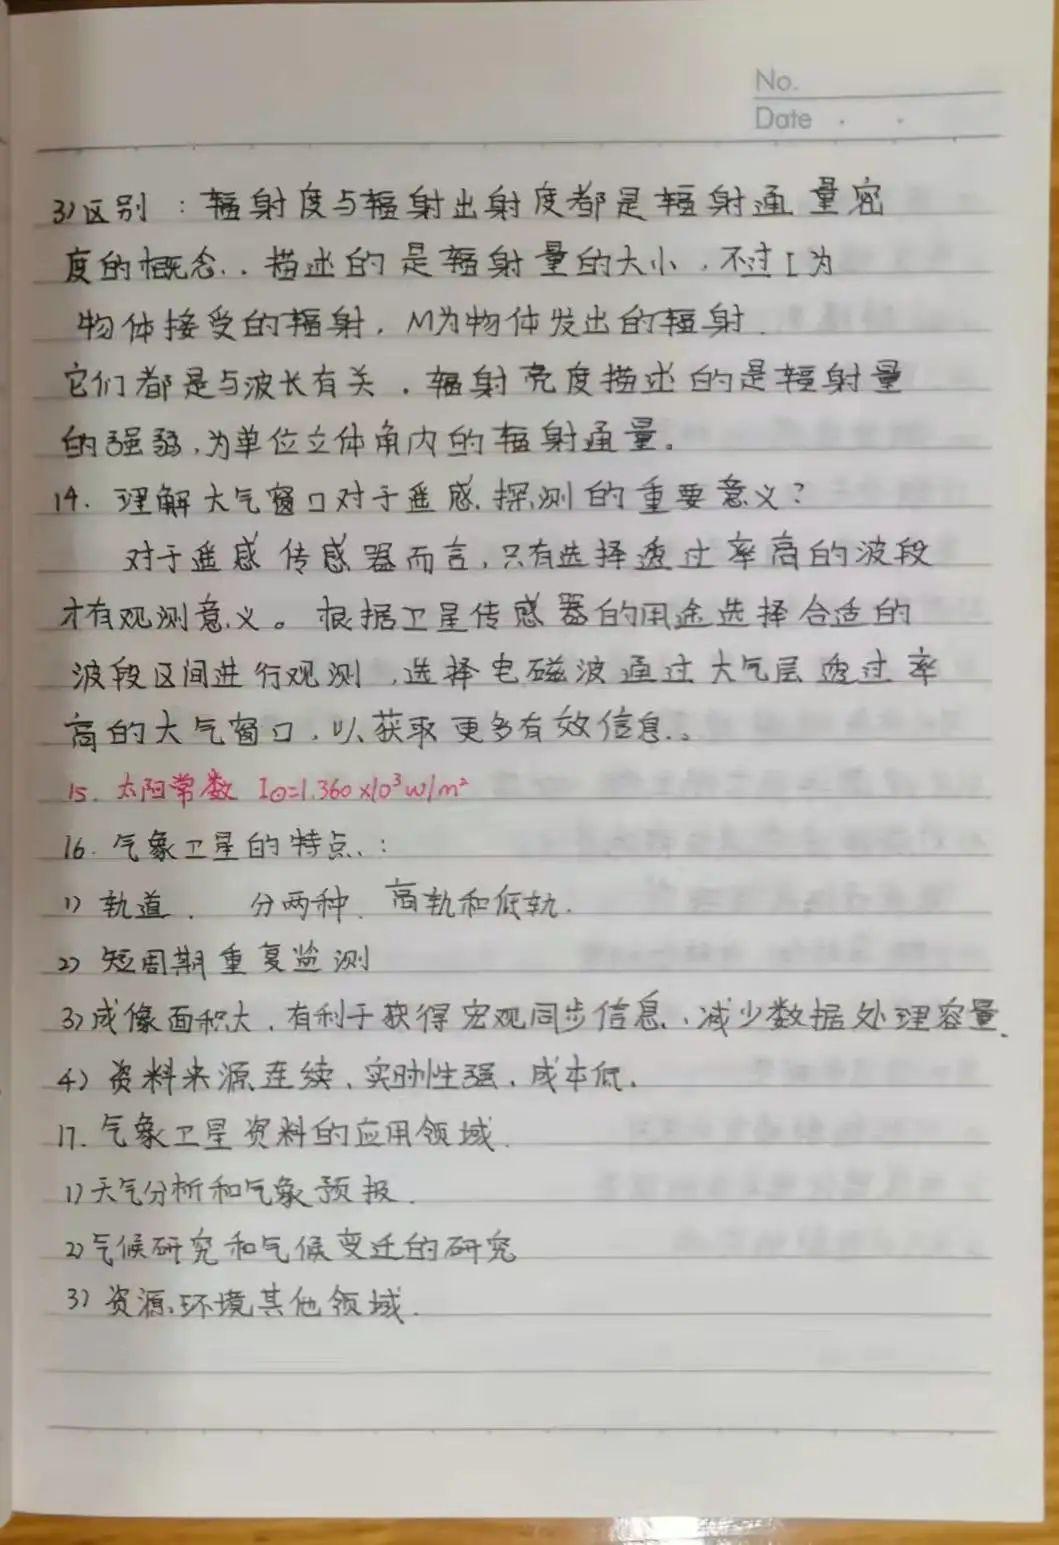 No.
Date
3)区别：辐射度与辐射出射度都是辐射通量密
度的概念．．描述的是辐射量的大小，不过I为
物体接受的辐射，M为物体发出的辐射．
它们都是与波长有关，辐射亮度描述的是辐射量
的强弱,为单位立体角内的辐射通量。
14. 理解大气窗口对于遥感探测的重要意义？
对于遥感传感器而言,只有选择透过率高的波段
才有观测意义。根据卫星传感器的用途选择合适的
波段区间进行观测,选择电磁波通过大气层透过率
高的大气窗口，以获取更多有效信息。
15. 太阳常数 I⊙=1.360×10³w/m²
16. 气象卫星的特点：
1) 轨道． 分两种．高轨和低轨．
2) 短周期重复监测
3)成像面积大，有利于获得宏观同步信息、减少数据处理容量．
4) 资料来源连续、实时性强，成本低．
17. 气象卫星资料的应用领域．
1)天气分析和气象预报．
2)气候研究和气候变迁的研究
3) 资源、环境其他领域．